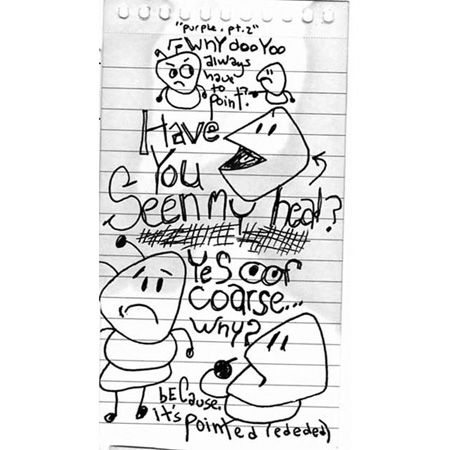 "purple. pt.2"
WHY doo Yoo
always
have
to
point?
Have
You
Seen my head?
Yes oof
coarse...
why?
because.
It's
pointed (ededed)